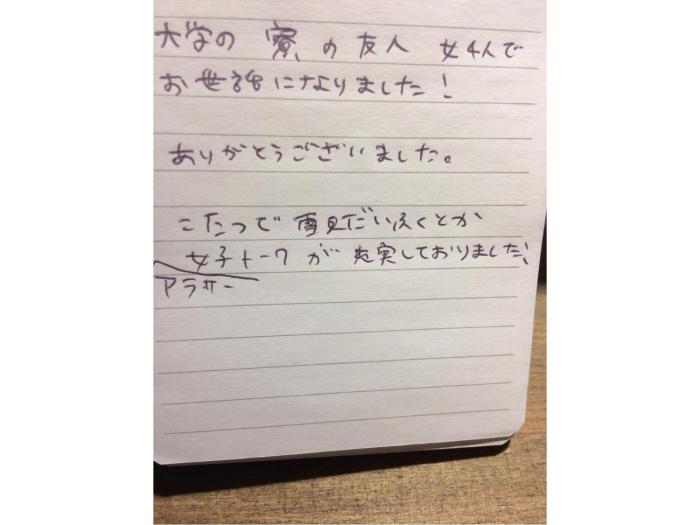 大学の 寮 の友人 女4人で
お世話になりました!
ありがとうございました。
こたつで 雪見だいふくとか
女子トークが 充実しておりました!
アラサー